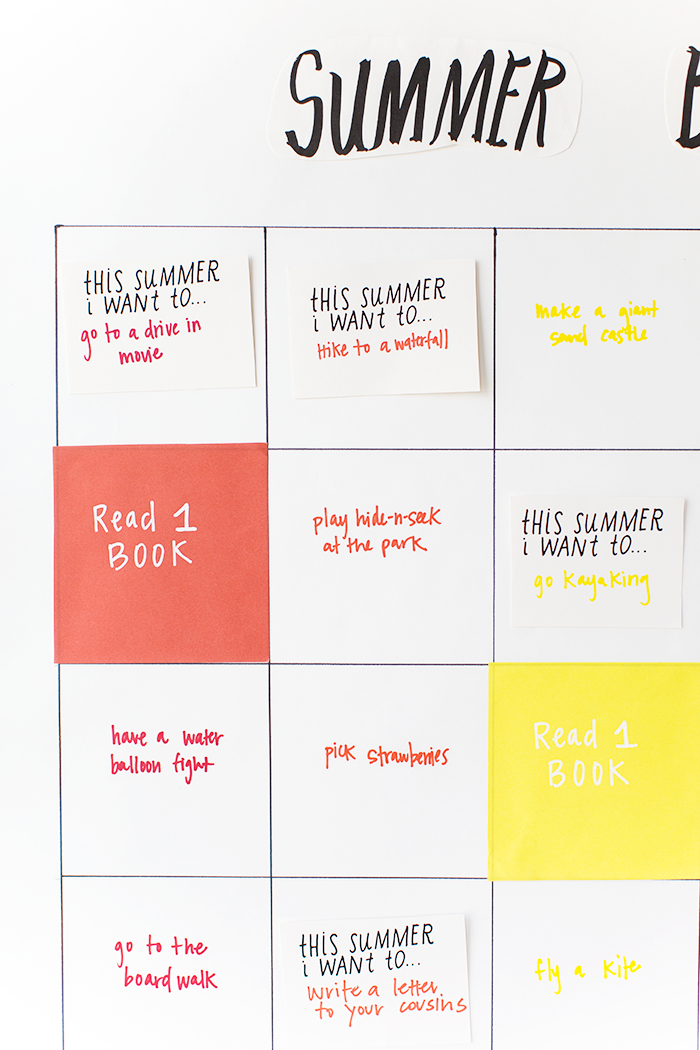 SUMMER
tHiS SUMMER
i WANT tO...
go to a drive in
movie
tHiS SUMMER
i WANT tO...
Hike to a waterfall
make a giant
sand castle
Read 1
BOOK
play hide-n-seek
at the park
tHiS SUMMER
i WANT tO...
go kayaking
have a water
balloon fight
pick strawberries
Read 1
BOOK
go to the
boardwalk
tHiS SUMMER
i WANT tO...
Write a letter
to your cousins
fly a kite